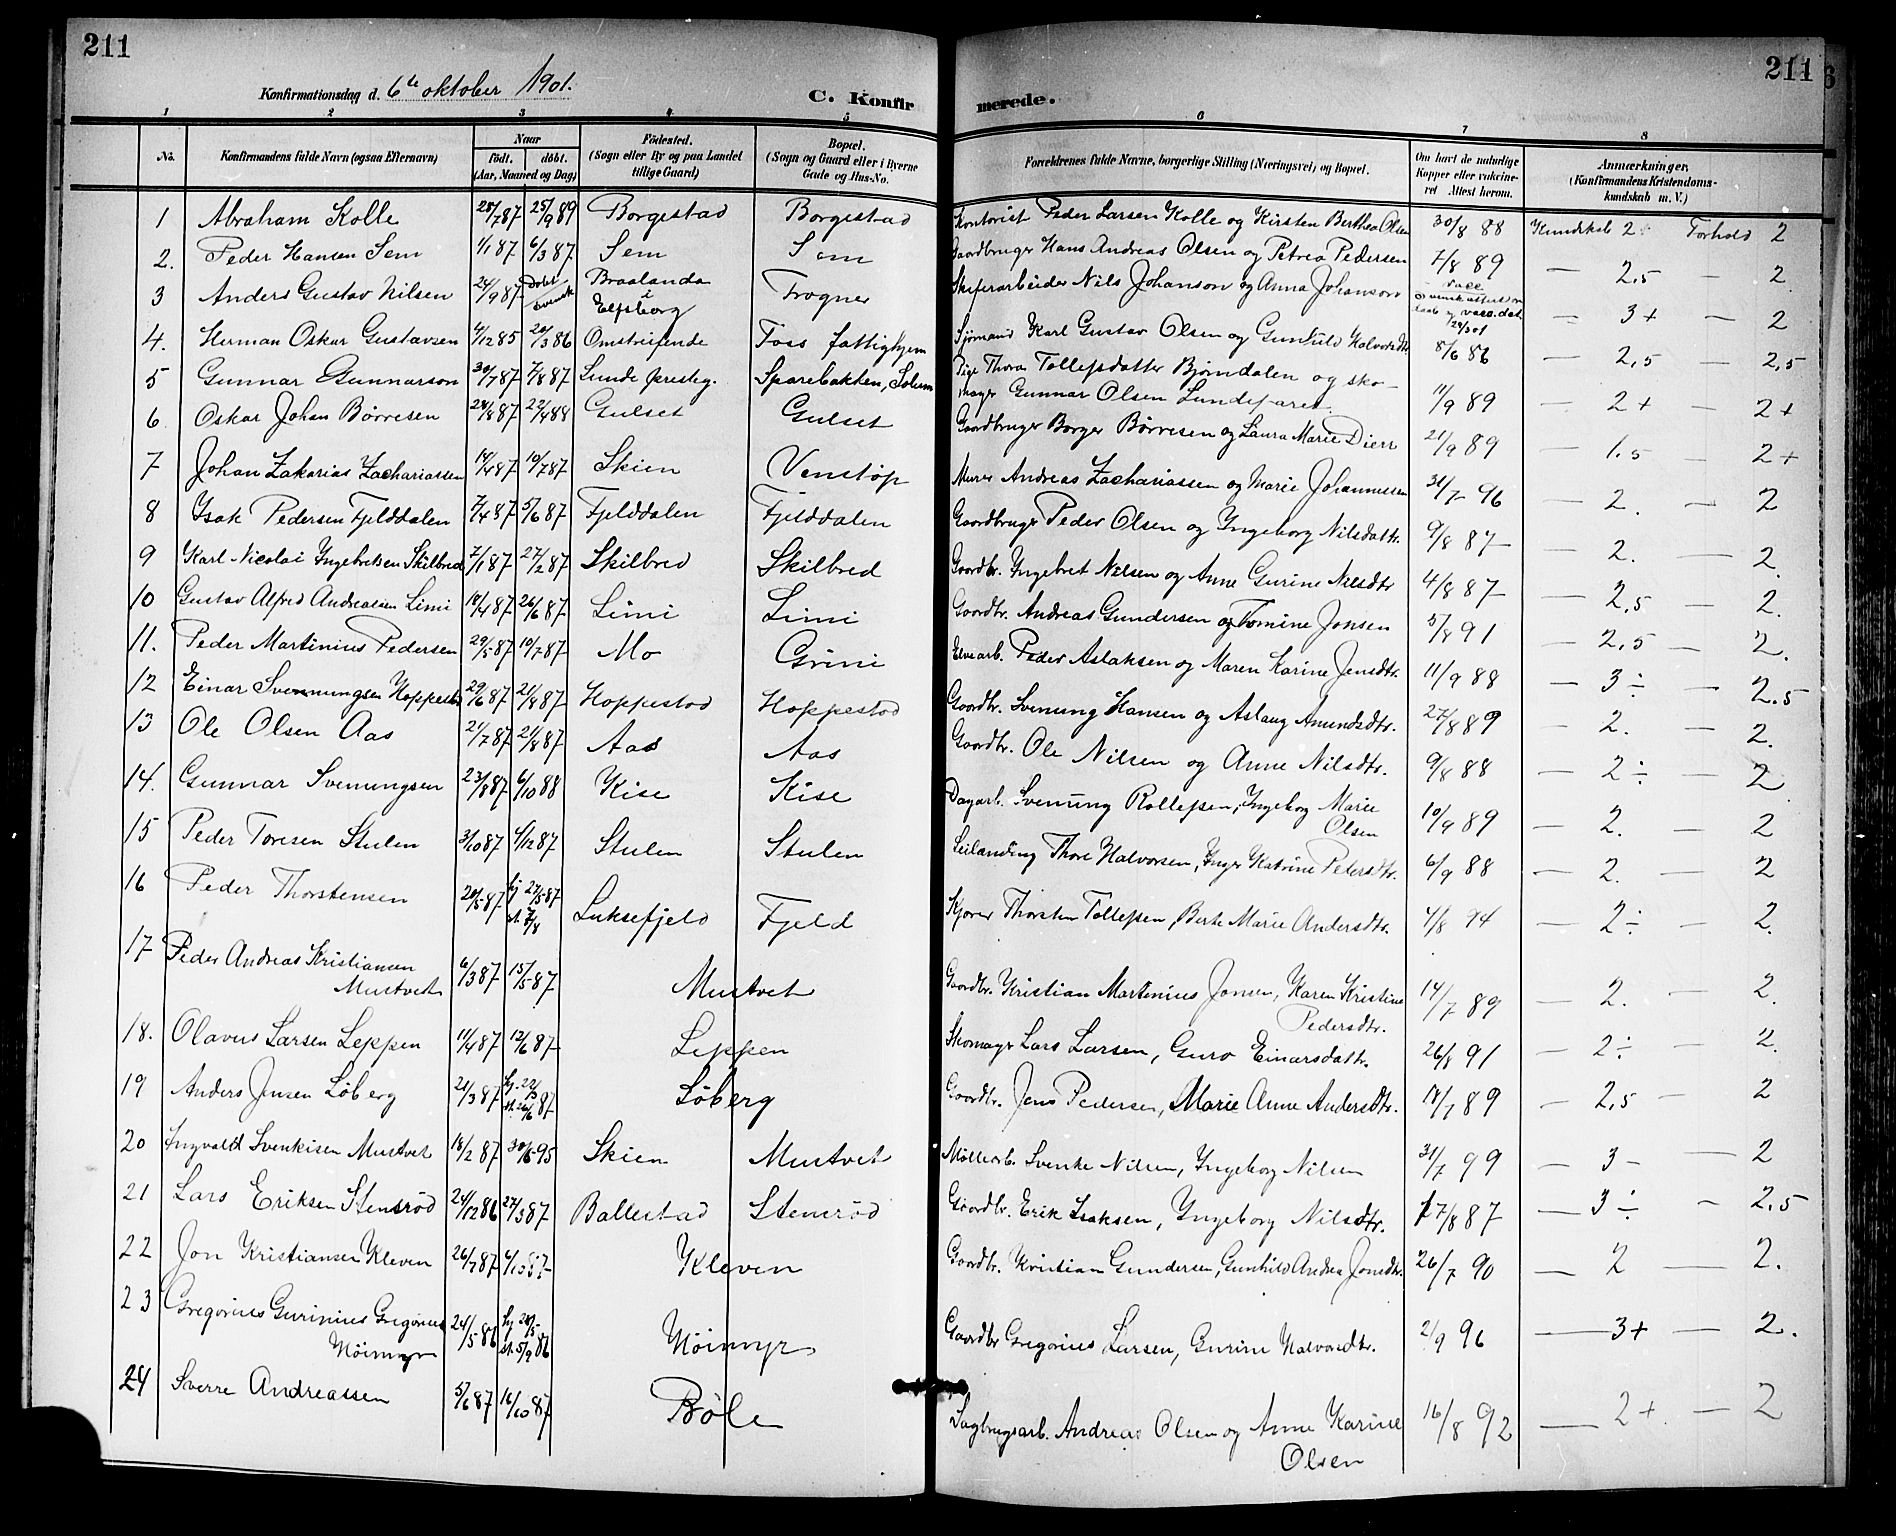 211
211
Konfirmationsdag d. 6te oktober 1901.
C. Konfirmerede.
1 2 3 4 5 6 7 8
No. Konfirmandens fulde Navn (ogsaa Efternavn) Naar født. døbt. (Aar, Maaned og Dag) Fødested. (Sogn eller By og paa Landet tillige Gaard) Bopæl. (Sogn og Gaard eller i Byerne Gade og Hus-No. Forældrenes fulde Navne, borgerlige Stilling (Næringsvei) og Bopæl. Om havt de naturlige Kopper eller vakcineret Attest herom. Anmærkninger, (Konfirmandens Kristendomskundskab m. V.)
1 Abraham Kolle 28/7 87 25/9 89 Borgestad Borgestad Kontorist Peder Larsen Kolle og Kirsten Berthea Olsen 30/8 88 Kundskab 2 Forhold 2
2. Peder Hansen Sem 4/1 87 6/3 87 Sem Sem Gaardbruger Hans Andreas Olsen og Petrea Pedersen 7/8 89 — 2,5 — 2
3 Anders Gustav Nilsen 24/9 87 Døbt Svensk Braalanda i Elfsborg Trogner Skiferarbeider Nils Johanson og Anna Johanson — 3+ — 2
4. Herman Oskar Gustavsen 4/12 85 20/3 86 Omstreifende Foss fattighjem Sjømand Karl Gustav Olsen og Gunhild Halvorsdtr 8/6 86 — 2,5 — 2,5
5 Gunnar Gunnarson 30/7 87 7/8 87 Lunde presteg. Sparebakken, Solum Pige Thora Tollefsdatter Bjørndalen og skomager Gunnar Olsen Lundefaret 11/9 89 — 2+ — 2+
6. Oskar Johan Børresen 24/8 87 22/4 88 Gulset Gulset Gaardbruger Børger Børresen og Laura Marie Dierr 21/9 89 — 1.5 — 2+
7 Johan Zakarias Zachariassen 14/4 87 10/7 87 Skien Venstøp Murer Andreas Zachariassen og Marie Johannessen 31/7 96 — 2. — 2
8 Isak Pedersen Fjelddalen 7/4 87 5/6 87 Fjelddalen Fjelddalen Gaardbruger Peder Olsen og Ingeborg Nilsdattr. 9/8 87 — 2. — 2.
9 Karl Nicolai Ingebretsen Skilbred 7/1 87 27/2 87 Skilbred Skilbred Gaardbr. Ingebret Nilsen og Anne Gurine Nilsdtr 4/8 87 — 2,5 — 2.
10 Gustav Alfred Andreassen Limi 18/4 87 26/6 87 Limi Limi Gaardbr. Andreas Gundersen og Tomine Jonsen 5/8 91 — 2,5 — 2.
11. Peder Martinius Pedersen 29/5 87 10/7 87 Mo Grini Elvearb. Peder Aslaksen og Maren Karine Jensdtr. 11/9 88 — 3÷ — 2.5
12 Einar Svenningsen Hoppestad 29/6 87 21/8 87 Hoppestad Hoppestad Gaardbr. Svenung Hansen og Aslaug Amundsdtr. 27/8 89 — 2. — 2.
13 Ole Olsen Aas 21/7 87 21/8 87 Aas Aas Gaardbr. Ole Nilsen og Anne Nilsdtr. 9/8 88 — 2÷ — 2
14. Gunnar Svenningsen 23/8 87 6/10 88 Kise Kise Dagarb. Svenung Rollefsen, Ingeborg Marie Olsen 10/9 89 — 2. — 2
15 Peder Toresen Stulen 3/10 87 4/12 87 Stulen Stulen Leilænding Thore Halvorsen, Inger Katrine Petersdtr. 6/9 88 — 2. — 2
16 Peder Thorstensen 20/5 87 hj 27/5 87 st. 7/8 Luksefjeld Fjeld Kjører Thorsten Tollefsen, Berte Marie Andersdtr. 4/8 94 — 2÷ — 2.
17 Peder Andreas Kristiansen Mustvet 6/3 87 15/5 87 Mustvet Gaardbr. Kristian Martinius Jonsen, Karen Kristine Pedersdtr. 14/7 89 — 2. — 2.
18. Olavus Larsen Leppen 11/4 87 12/6 87 Leppen Skomager Lars Larsen, Guro Einarsdattr. 26/8 91 — 2÷ — 2.
19 Anders Jensen Løberg 21/3 87 hj. 22/3 st. 26/6 87 Løberg Gaardbr. Jens Pedersen, Marie Anne Andersdtr. 18/7 89 — 2,5 — 2
20 Ingvald Svenkisen Mustvet 18/2 87 30/6 95 Skien Mustvet Møllearb. Svenke Nilsen, Ingeborg Nilsen 31/7 99 — 3- — 2
21 Lars Eriksen Stensrød 24/12 86 27/3 87 Ballestad Stensrød Gaardbr. Erik Isaksen, Ingeborg Nilsdtr. 17/8 87 — 3÷ — 2,5
22 Jon Kristiansen Kleven 26/7 87 Kleven Gaardbr. Kristian Gundersen, Gunhild Andrea Jonsdtr. 26/7 90 — 2 — 2.
23 Gregorius Gurinius Gregorius Moimyr 24/5 86 hj 28/5 st. 5/9 86 Moimyr Gaardbr Gregorius Larsen, Gurine Halvorsdtr. 2/9 96 — 3+ — 2.
24 Sverre Andreassen 5/6 87 16/10 87 Bøle Sagbrugsarb. Andreas Olsen og Anne Karine Olsen 16/8 92 — 2+ — 2